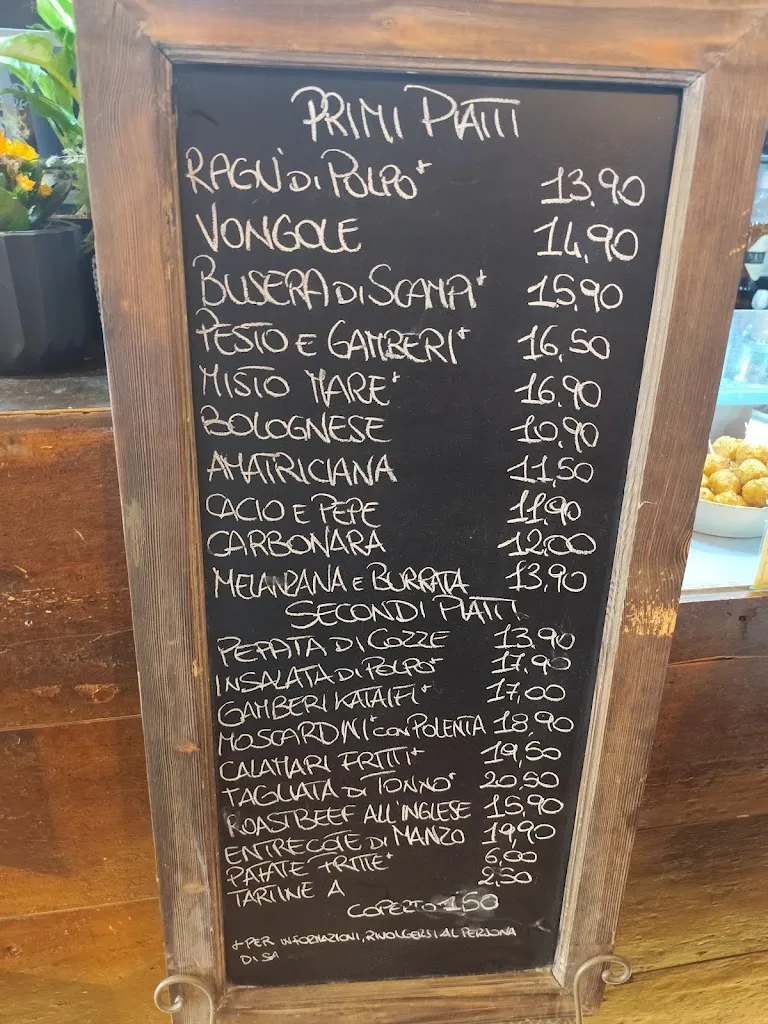 PRIMI PIATTI
RAGU' DI POLPO* 13.90
VONGOLE 14.90
BUSERA DI SCAMPI* 15.90
PESTO E GAMBERI* 16.50
MISTO MARE* 16.90
BOLOGNESE 10.90
AMATRICIANA 11.50
CACIO E PEPE 11.90
CARBONARA 12.00
MELANZANA E BURRATA 13.90
SECONDI PIATTI
PEPATA DI COZZE 13.90
INSALATA DI POLPO* 17.90
GAMBERI KATAIFI* 17,00
MOSCARDINI* CON POLENTA 18.90
CALAMARI FRITTI* 19,50
TAGLIATA DI TONNO* 20.50
ROASTBEEF ALL'INGLESE 15.90
ENTRECOTE DI MANZO 19,90
PATATE FRITTE* 6,00
TARTINE A 2,50
COPERTO 1,50
* PER INFORMAZIONI, RIVOLGERSI AL PERSONA
DI SA